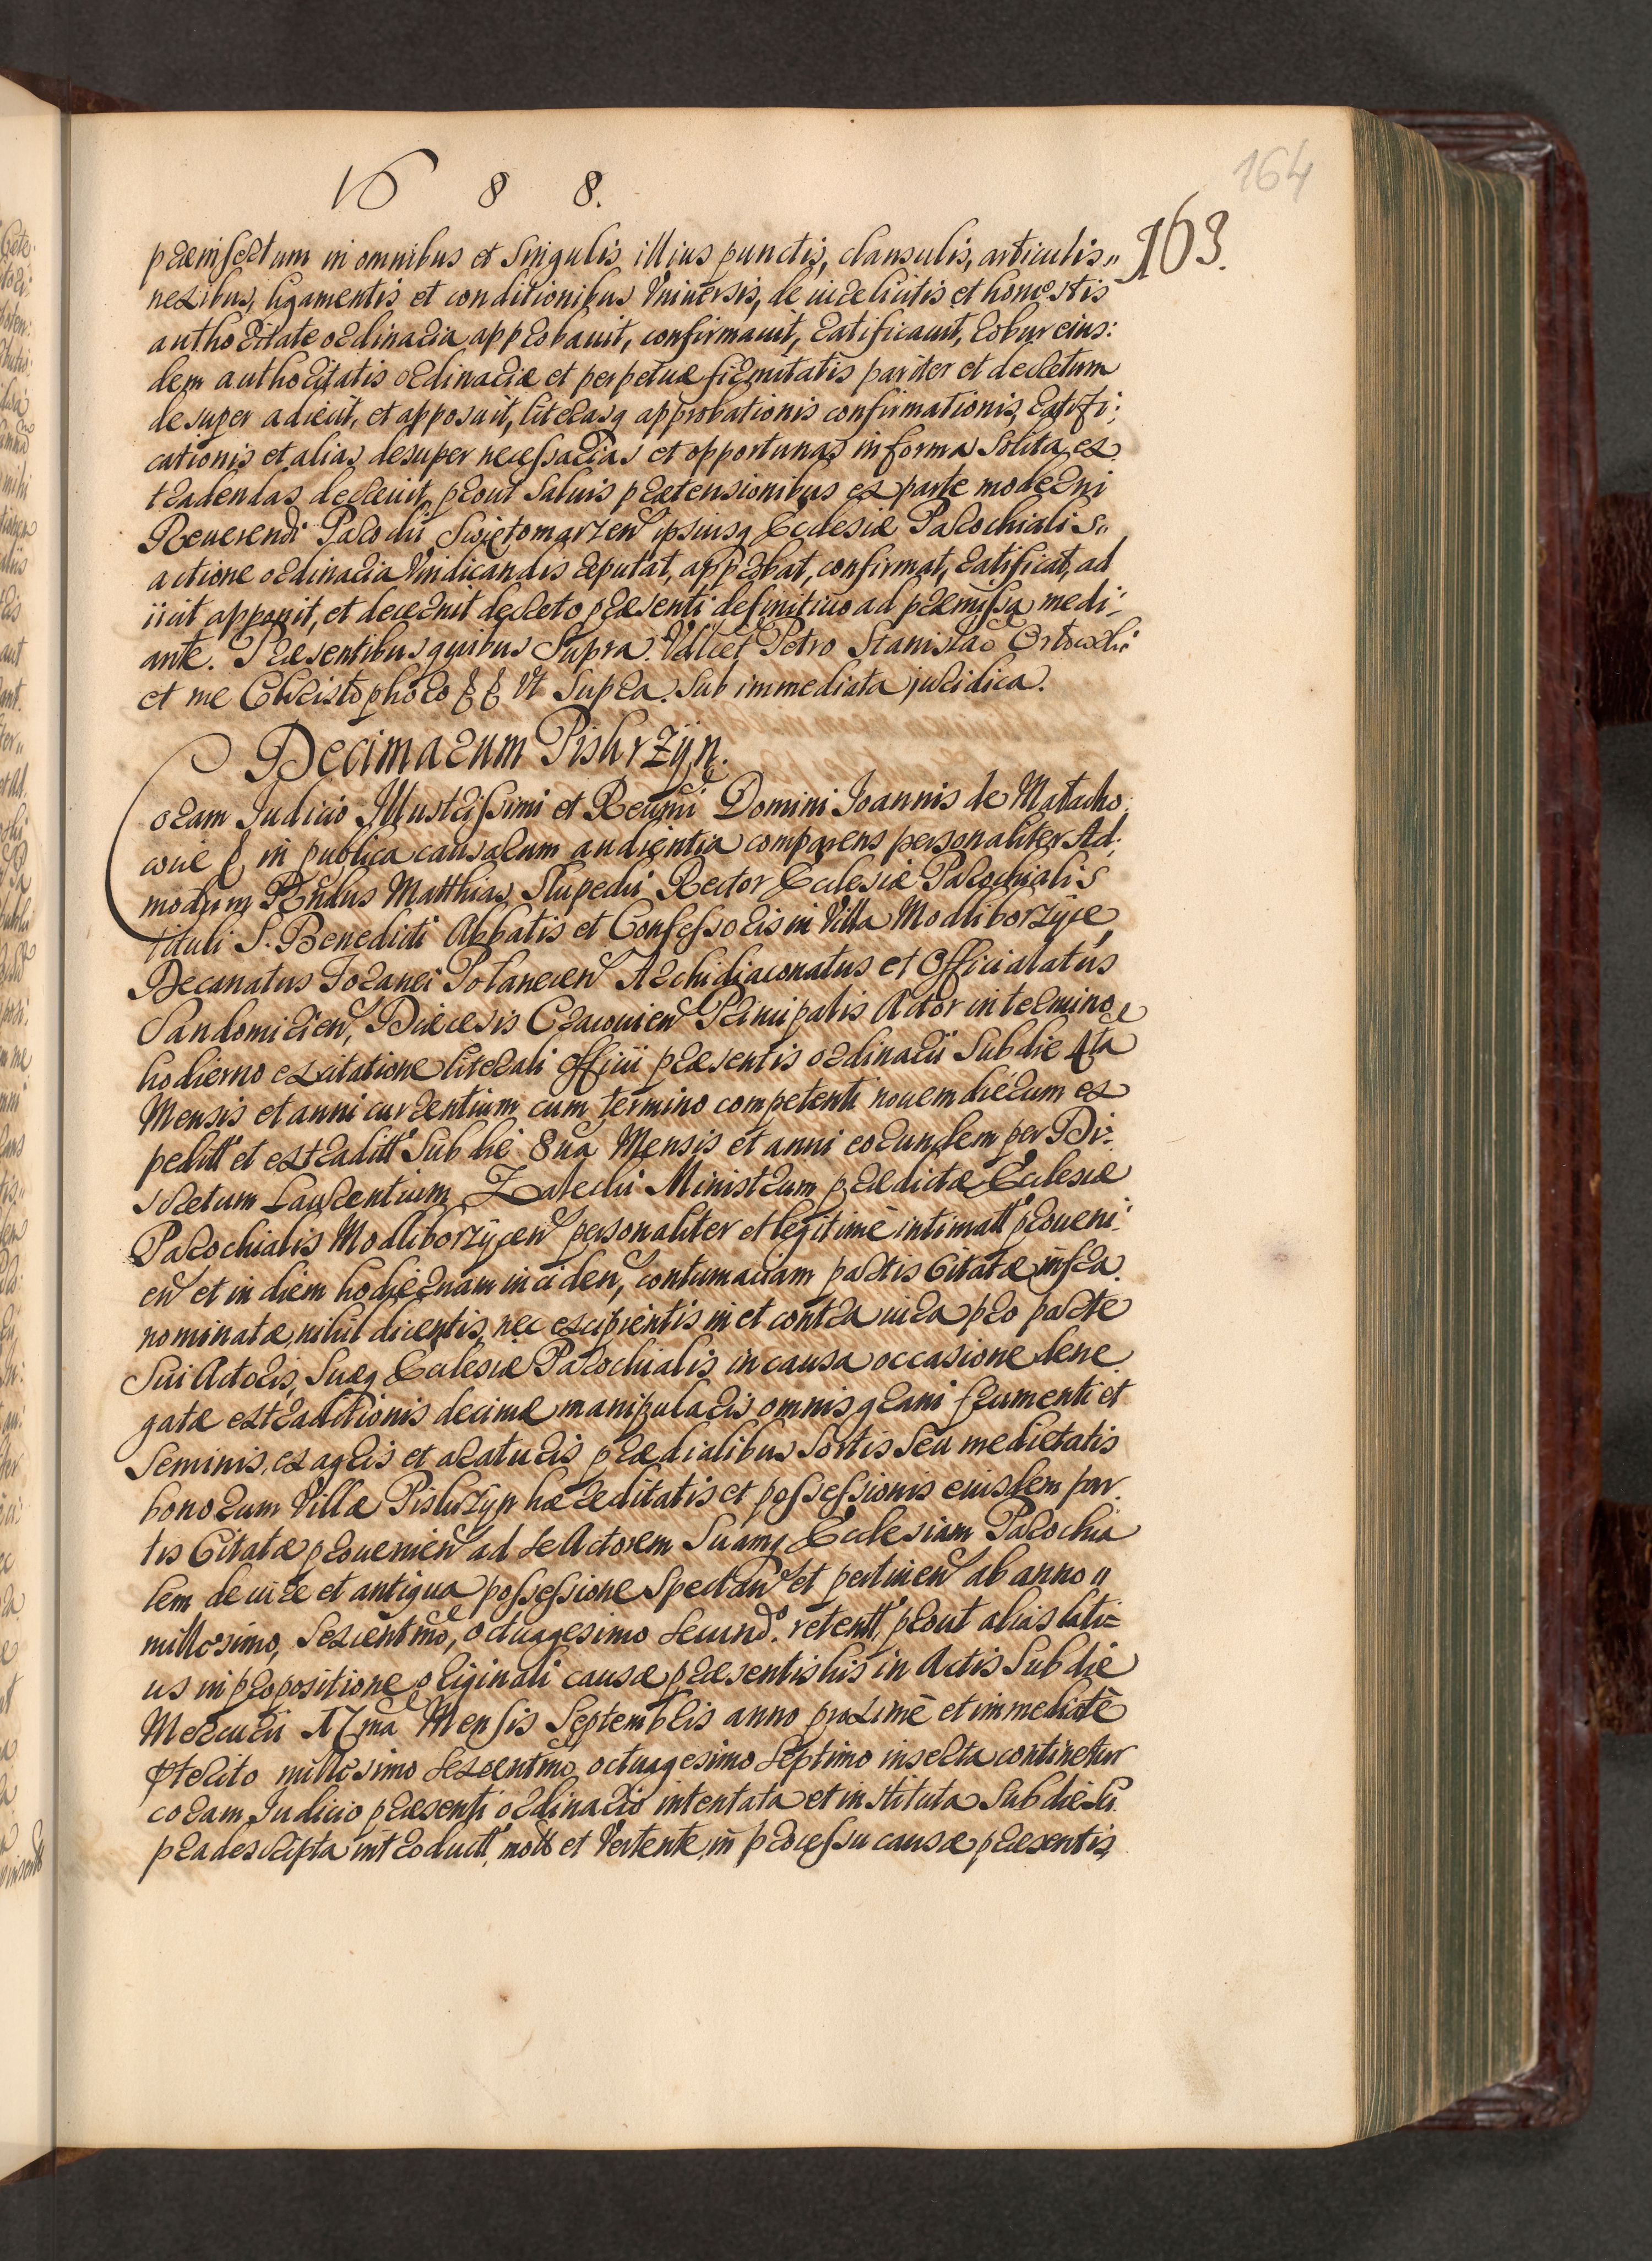 164
1688.
163.
præinsertum in omnibus et Singulis illius punctis, clausulis, articulis,,
nexibus, ligamentis et conditionibus Vniversis, de iure licitis et honestis
authoritate ordinaria approbavit, confirmavit, ratificavit, robur eius:
dem authoritatis ordinariæ et perpetuæ firmitatis pariter et decretum
desuper adiecit, et apposuit, literasq approbationis confirmationis, ratifi:
cationis et alias desuper necessarias et opportunas in forma Solita ex
tradendas decrevit, prout Salvis prætensionibus ex parte moderni
Reverendi Parochi Swiętomarzen ipsiusq Ecclesiæ Parochialis,,
actione ordinaria Vindicandis reputat, approbat, confirmat, ratificat, ad
iicit apponit, et decernit decreto præsenti definitivo ad præmissa medi:
ante. Præsentibus quibus Supra. Petro Stanislao
et me Christophoro Vt Supra. Sub immediata juridica.
Decimarum Pishrzÿn.
Coram Judicio Illustrissimi et Reũmi Domini Joannis de Małacho.
wie in publica causarum audientia comparens personaliter Ad:
modum Rñdus Matthias Słupecki Rector Ecclesiæ Parochialis
tituli S. Benedicti Abbatis et Confessoris in Villa Modliborzÿce,
Decanatus Foranei Połanecen Archidiaconatus et Officialatus
Sandomirien, Diæcesis Cracovien Principalis Actor in termino
hodierno ex citatione literali Officii præsentis ordinarii Sub die 4ta
Mensis et anni currentium cum termino competenti novem dierum ex
peditt et extraditt Sub die 8va Mensis et anni eorundem per Di:
scretum Laurentium Zalecki Ministrum prædictæ Ecclesiæ
Parochialis Modliborzÿcen personaliter et legitimè intimatt proveni:
en et in diem hodiernam inciden, contumaciam partis Citatæ infra
nominatæ, nihil dicentis, nec excipientis in et contra iura pro parte
Sui Actoris, Suæq Ecclesiæ Parochialis in causa occasione dene
gatæ extraditionis decimæ manipularis omnis grani frumenti et
Seminis, ex agris et araturis prædialibus Sortis Seu medietatis
bonorum Villæ Pishrzÿn hæreditatis et possessionis eiusdem par
tis Citatæ provenien ad se Actorem Suamq Ecclesiam Parochia
lem de iure et antiqua possessione Spectan et pertinen ab anno,,
millesimo, Sexcentmo, octuagesimo Secundo. retentt, prout alias lati:
us in propositione originali causæ præsentis his in Actis Sub die
Mercurii 17ma Mensis Septembris anno proximè et immediatè
pterito millesimo Sexcentmo octuagesimo Septimo inserta continetur
coram Judicio præsenti ordinario intentata et instituta Sub die Su
pradescripta introductt, mott et Vertente, in processu causæ præsentis,